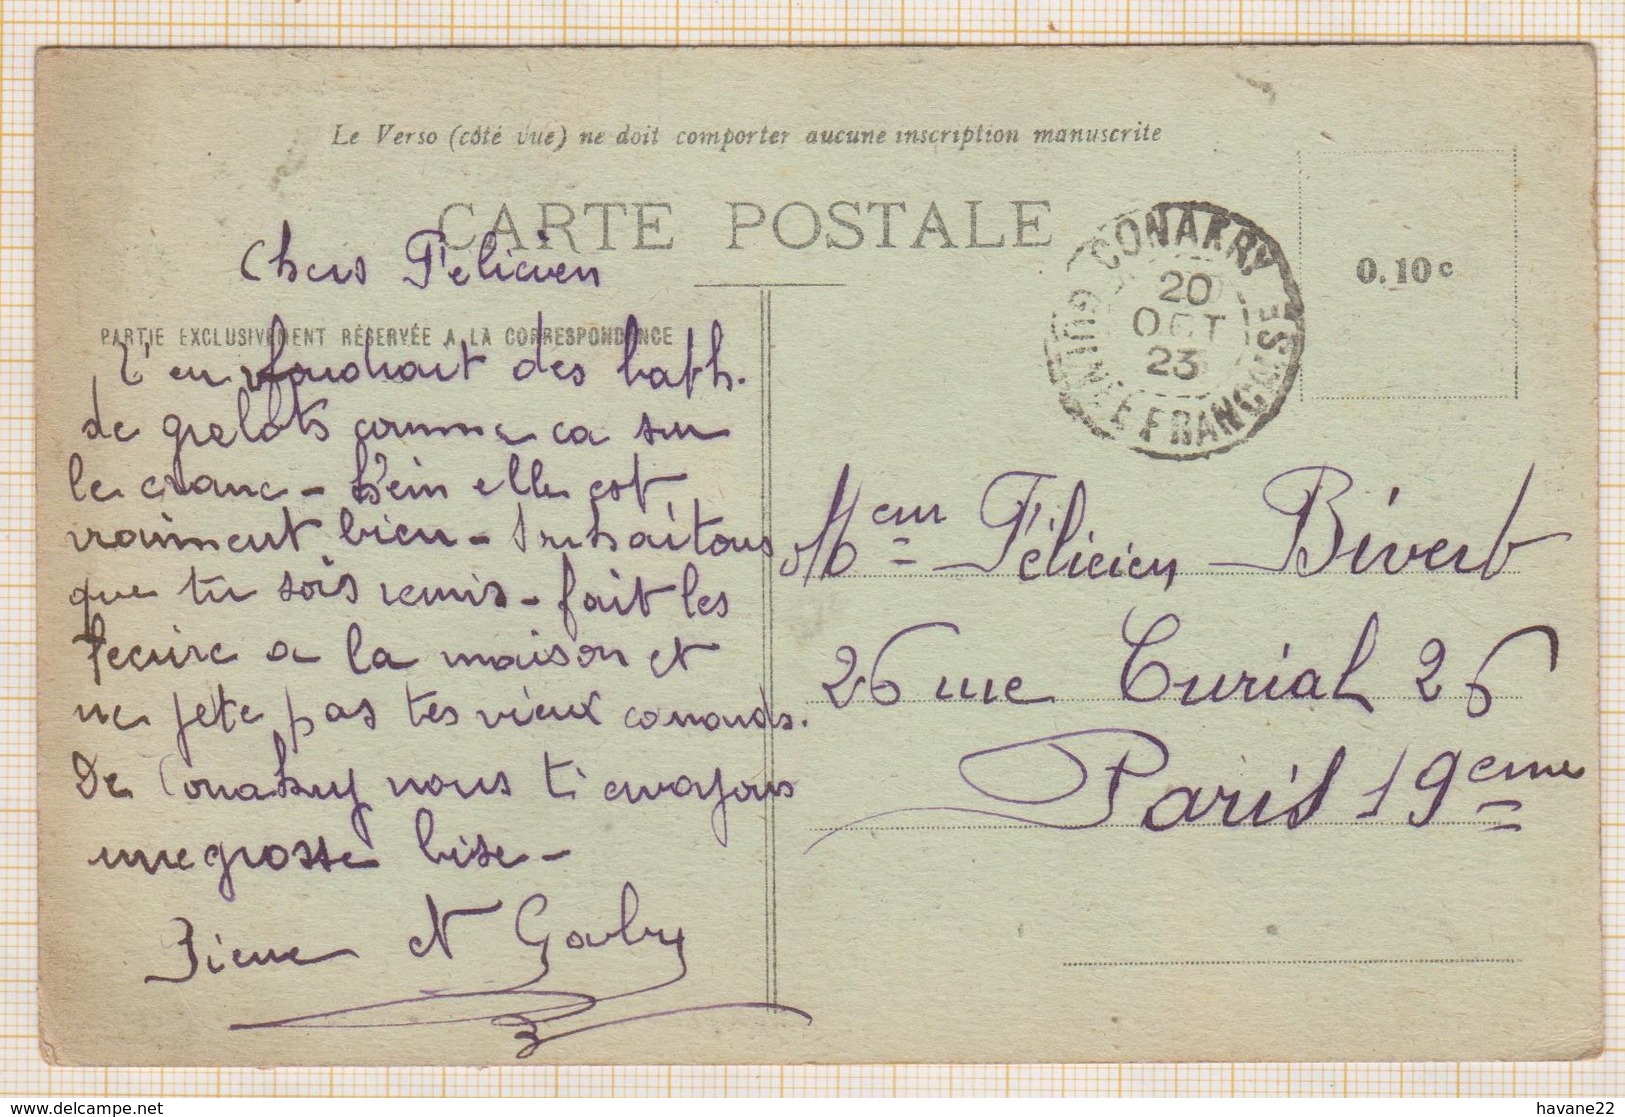 Le Verso (côté vue) ne doit comporter aucune inscription manuscrite
CARTE POSTALE
CONAKRY
20
OCT
23
GUINÉE FRANÇAISE
0.10 c
Chers Felicien
PARTIE EXCLUSIVEMENT RÉSERVÉE A LA CORRESPONDANCE
T'en faudrait des bath.
de grelots comme ca sur
le crane - hein elle est
vraiment bien - Souhaitons
que tu sois remis - fait les
recuire a la maison et
ne jete pas tes vieux
De Conakry nous t'envoyons
une grosse bise -
Pierre et Gaby
Mem Félicien Bivert
26 rue Curial 26
Paris 19eme
delcampe.net
havane22